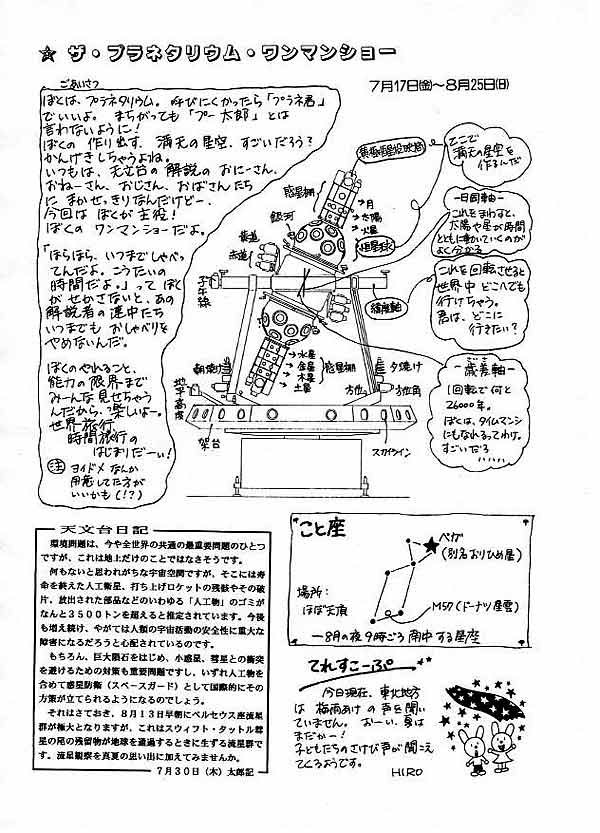 ☆ ザ・プラネタリウム・ワンマンショー
7月17日(金)〜8月25日(日)
ごあいさつ
ぼくは、プラネタリウム。呼びにくかったら「プラネ君」
でいいよ。まちがっても「プー太郎」とは
言わないように!
ぼくの作り出す、満天の星空、すごいだろう?
かんげきしちゃうよね。
いつもは、天文台の解説のおにーさん、
おねーさん、おじさん、おばさんたち
にまかせっきりなんだけどー、
今回はぼくが主役!
ぼくのワンマンショーだよ。
「ほらほら、いつまでしゃべっ
てんだよ。こうたいの
時間だよ。」ってぼく
がせかさないと、あの
解説者の連中たち
いつまでもおしゃべりを
やめないんだ。
ぼくのやれること、
能力の限界まで
みーんな見せちゃう
んだから、楽しいよー。
世界旅行、
時間旅行の
はじまりだーい!
注 ヨイドメなんか
用意してた方が
いいかも(!?)
ここで
満天の星空を
作るんだ
惑星棚
月
太陽
火星
銀河
恒星球
黄道
赤道
子午線
日周軸
これをまわすと、
太陽や星が時間
とともに動いていくのが
よく分かる
緯度軸
これを回転させると
世界中どこへでも
行けちゃう。
君は、どこに
行きたい?
歳差軸
1回転で何と
26000年。
ぼくは、タイムマシン
にもなれるってわけ。
すごいだろ
ハハハハ
水星
金星
木星
土星
惑星棚
朝焼け
夕焼け
方位
方位角
地平高度
架台
スカイライン
天文台日記
環境問題は、今や全世界の共通の最重要問題のひとつ
ですが、これは地上だけのことではなさそうです。
何もないと思われがちな宇宙空間ですが、そこには寿
命を終えた人工衛星、打ち上げロケットの残骸やその破
片、放出された部品などのいわゆる「人工物」のゴミが
なんと3500トンを超えると推定されています。今後
も増え続け、やがては人類の宇宙活動の安全性に重大な
障害になるだろうと心配されているのです。
もちろん、巨大隕石をはじめ、小惑星、彗星との衝突
を避けるための対策も重要問題ですし、いずれ人工物を
含めて惑星防衛(スペースガード)として国際的にその
方策が立てられるようになるのでしょう。
それはさておき、8月13日早朝にペルセウス座流星
群が極大となりますが、これはスウィフト・タットル彗星
の尾の残留物が地球を通過するときに生ずる流星群で
す。流星観察を真夏の思い出に加えてみませんか。
7月30日(木)太郎記
こと座
ベガ
(別名おりひめ星)
場所:
ほぼ天頂
M57(ドーナツ星雲)
8月の夜9時ごろ南中する星座
てれすこーぷ
今日現在、東北地方
は梅雨あけの声を聞い
ていません。おーい、夏は
まだかー!
子どもたちのさけび声が聞こえ
てくるようです。
HIRO